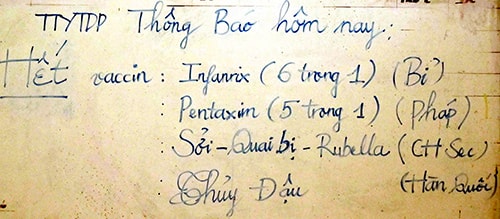 TTYTDP Thông Báo hôm nay:
Hết vaccin : Infanrix (6 trong 1) (Bỉ)
: Pentaxim (5 trong 1) (Pháp)
: Sởi-Quai bị-Rubella (CH Sec)
Thủy Đậu (Hàn Quốc)